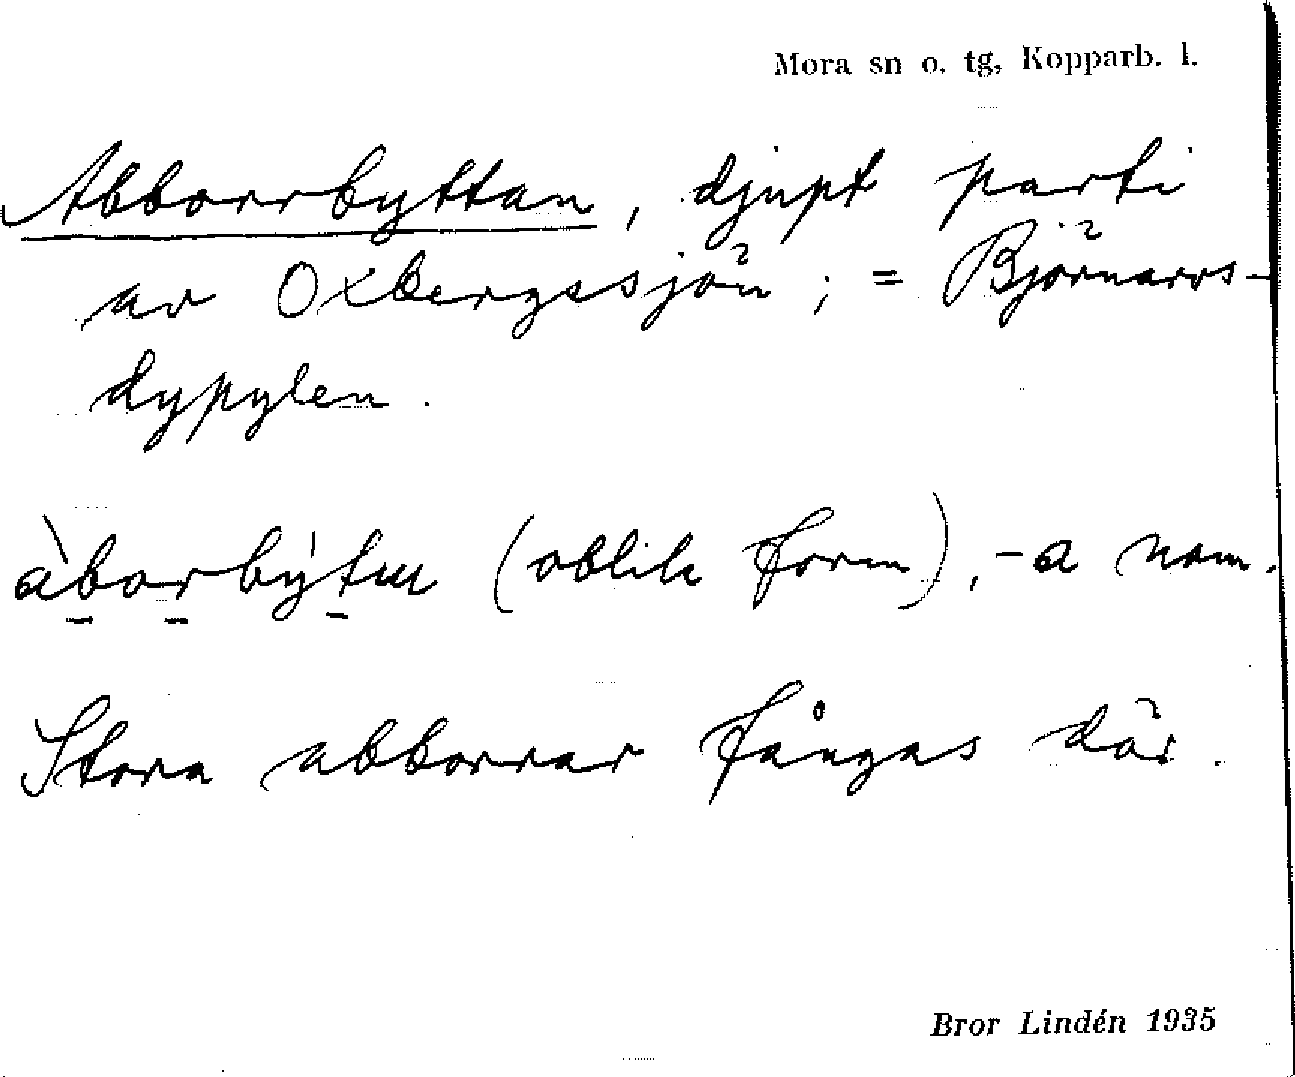 Mora sn o. tg, Kopparb. l.
Abborrbyttan, djupt parti
av Oxbergssjön; = Björnarvs-
dypylen.
àborbýtu (oblik form), -a nom.
Stora abborrar fångas där.
Bror Lindén 1935